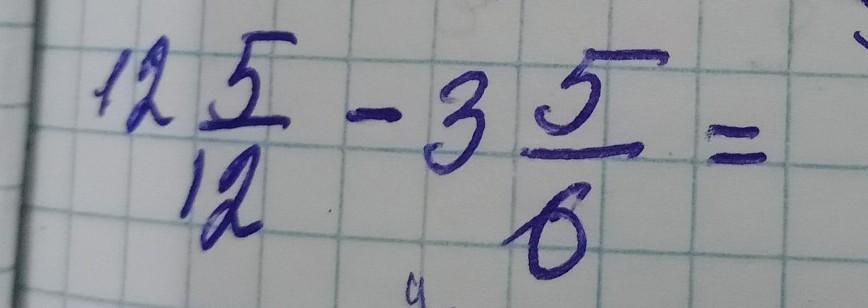 12 5/12 - 3 5/6 =